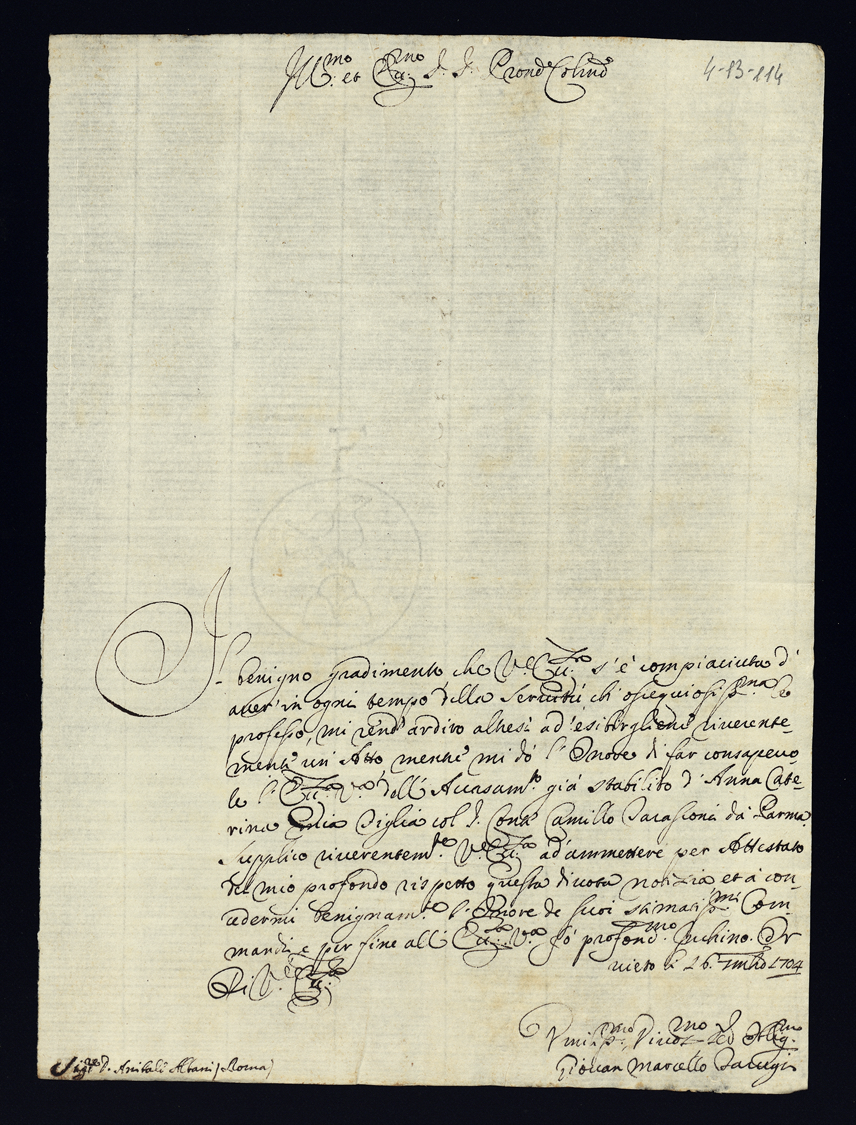 Ill.mo et Ecc.mo S. S. Pron.e Col.mo
4-13-114
Il benigno gradimento che V.a Ecc.za s'è compiaciuta d'
aver' in ogni tempo della Servitù, ch' ossequiosiss.ma le
professo, mi rend' ardito altresì ad' esibirgliene riverente-
mente un' Atto, mentre mi dò l' Onore di far consapevo-
le l' Ecc.za V.a dell' Accasam.to già stabilito d' Anna Cate-
rina mia Figlia col S. Conte Camillo da Parma.
Supplico riverentem.te V.a Ecc.za ad' ammettere per Attestato
del mio profondo rispetto questa divota notizia et à con-
cedermi benignam.te l' Onore de suoi stimatiss.mi Com-
mandi, e per fine all' Ecc.za V.a fò profond.mo Inchino. Or
vieto li 26. 1704
Di V.a Ecc.za
Umiliss.mo Divot.mo S. ed Oblig.mo
Giovan Marcello
Sig.re D. Anibale Albani (Roma)